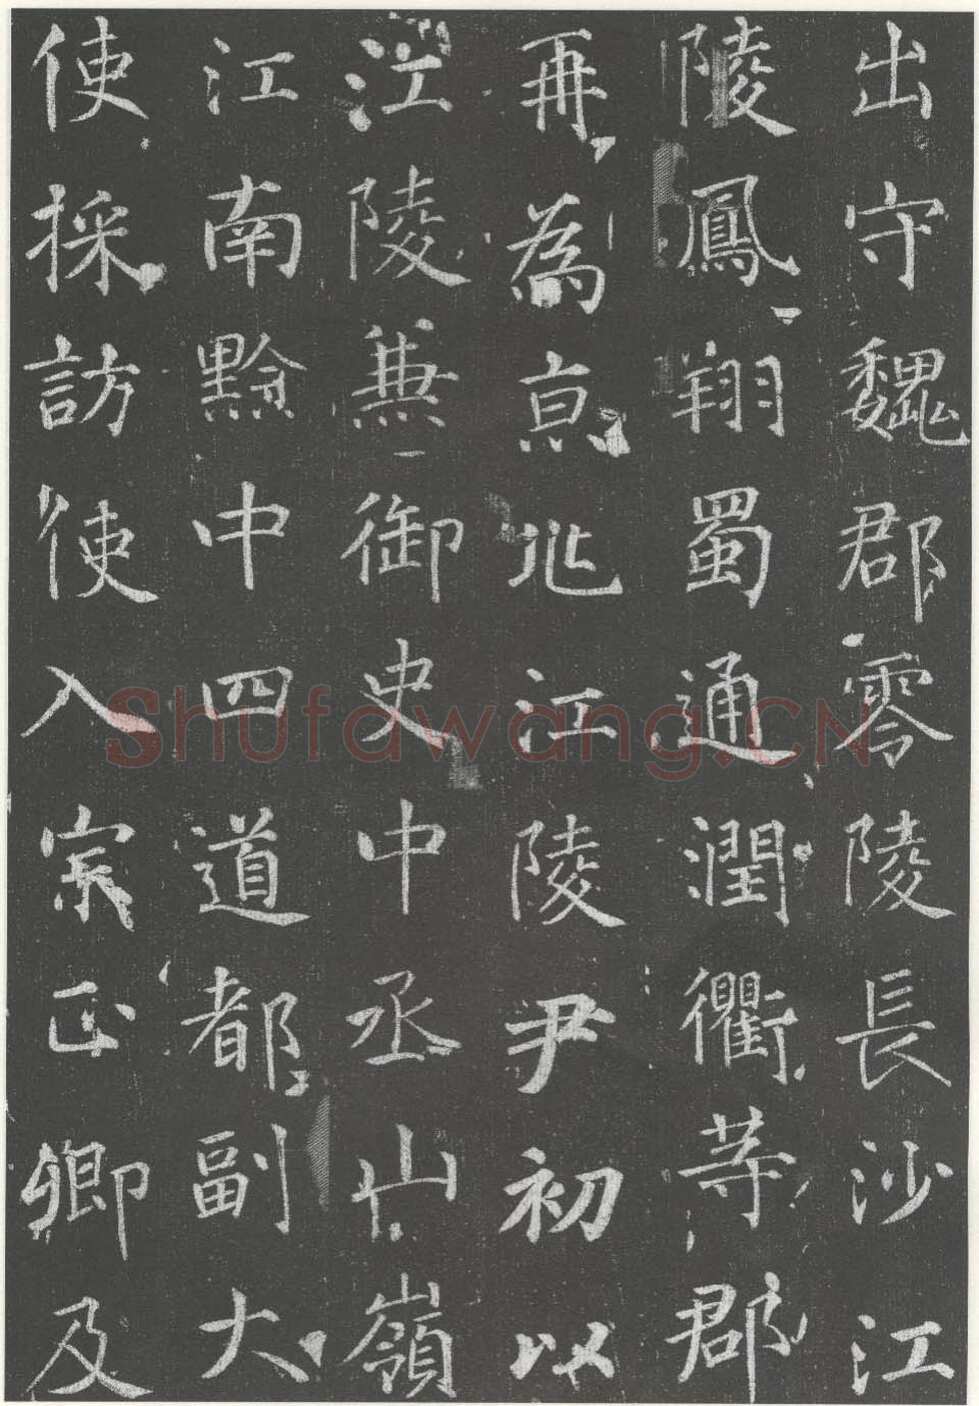 出守魏郡零陵長沙江
陵鳳翔蜀通潤衢等郡
再為京兆江陵尹初以
江陵兼御史中丞山嶺
江南黔中四道都副大
使採訪使入宗正卿及
Shufawang.CN